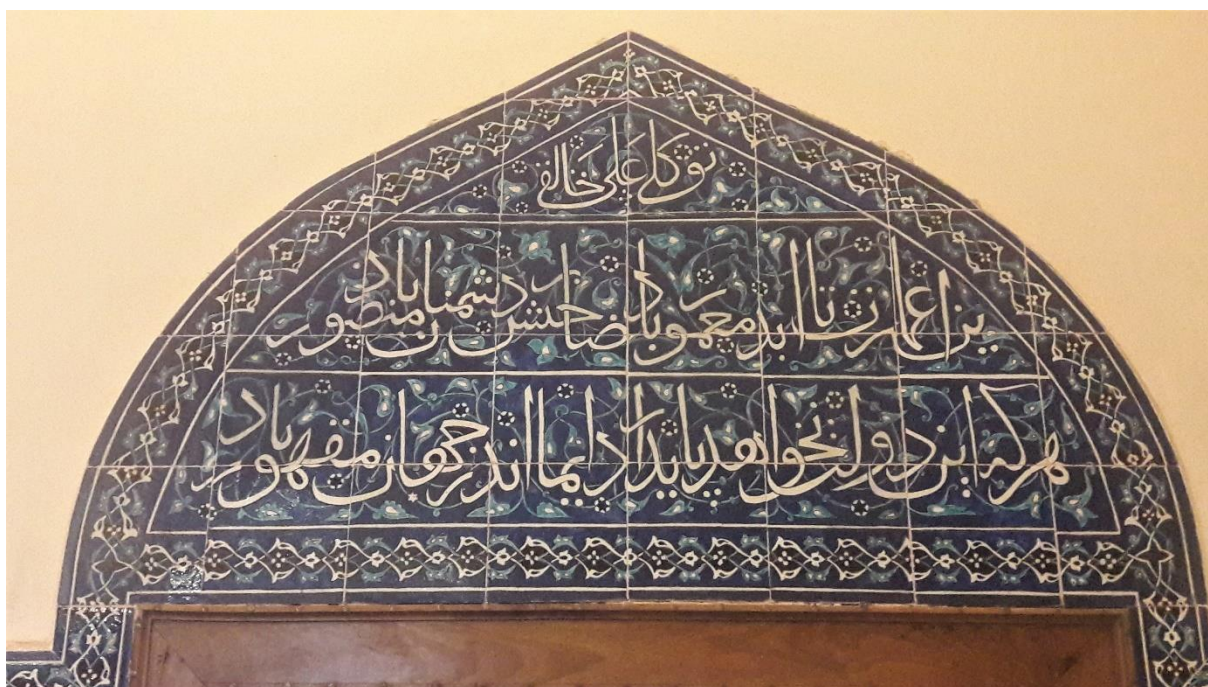 توکلی علی خالقی
این عمارت تا ابد معمور باد صاحبش دشمنان منصور باد
هر که این دولت نخواهد پایدار دایما اندر جهان مقهور باد